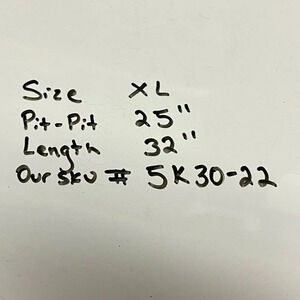 Size XL
Pit-Pit 25"
Length 32"
Our SKU # 5K30-22